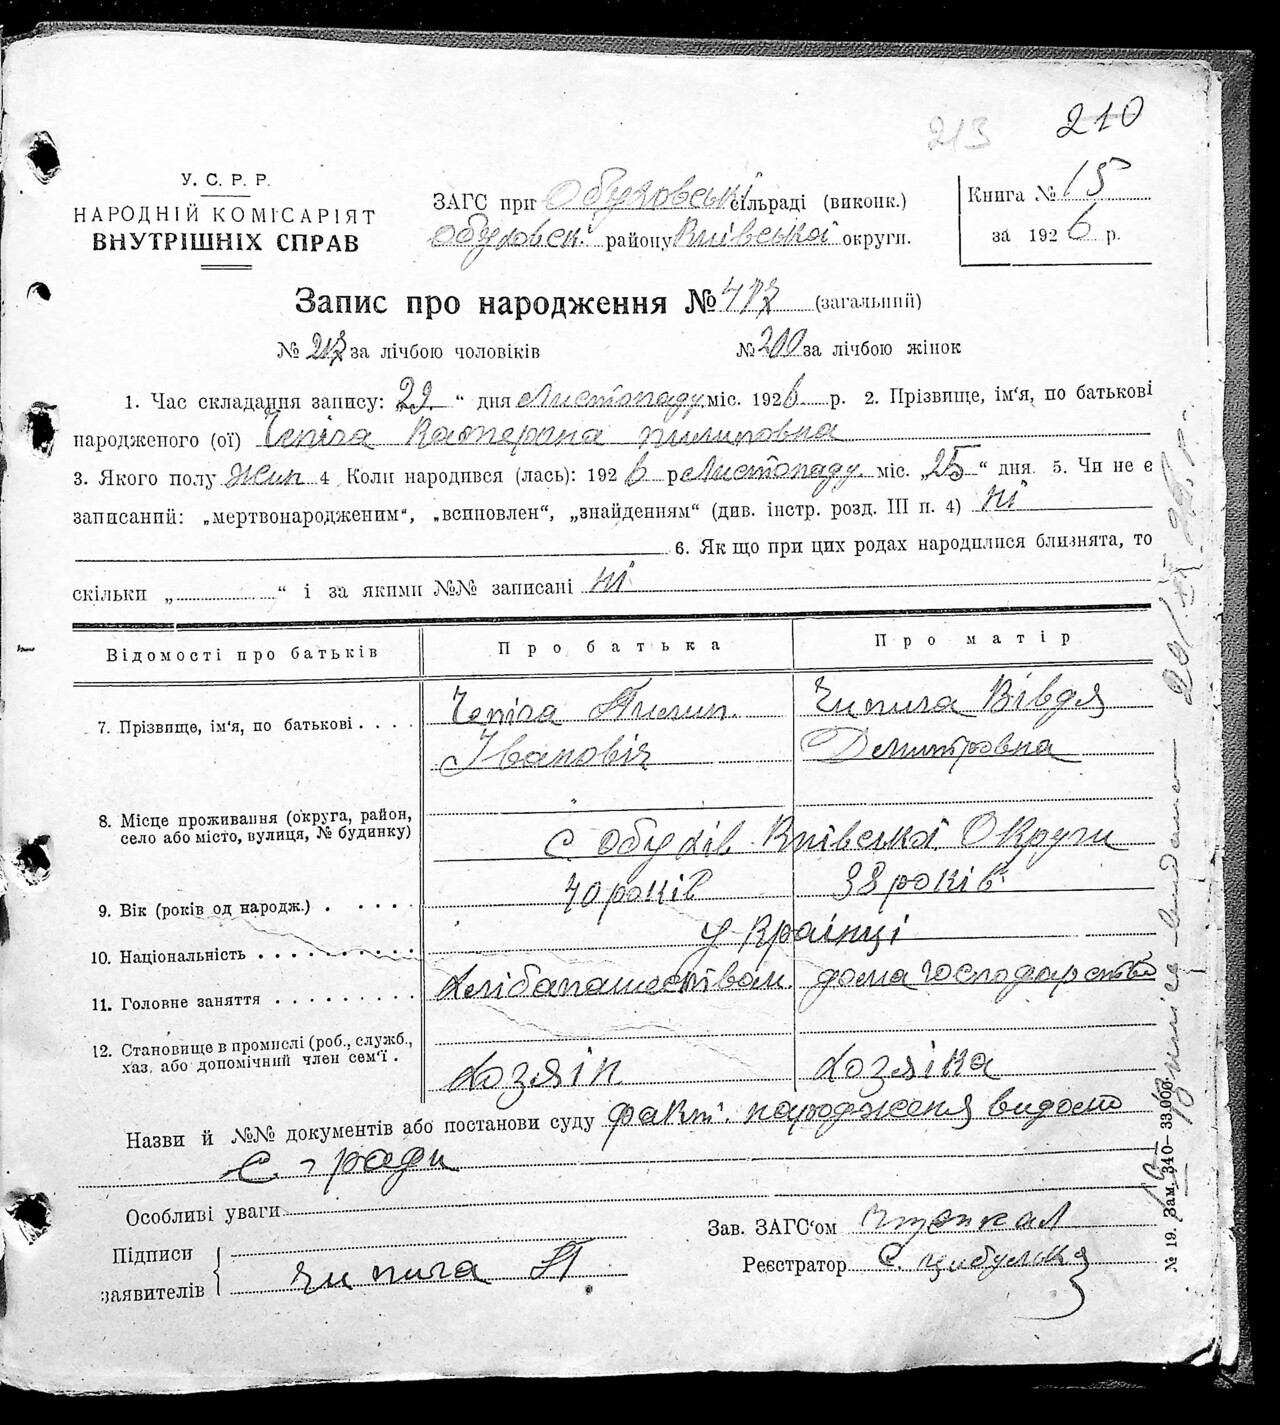 213 210
У. С. Р. Р.
НАРОДНІЙ КОМІСАРІЯТ
ВНУТРІШНІХ СПРАВ
ЗАГС при Обуховські сільраді (виконк.)
Обуховск. району Київської округи.
Книга № 15
за 1926 р.
Запис про народження № (загальний)
№ за лічбою чоловіків № 200 за лічбою жінок
1. Час складання запису: 29 " дня Листопаду міс. 1926 р. 2. Прізвище, ім'я, по батькові
народженого (ої) Чепіга Катерина пилиповна
3. Якого полу Жин 4 Коли народився (лась): 1926 р Листопаду міс. „25" дня. 5. Чи не є
записаний: „мертвонародженим", „всиновлен", „знайденням" (див. інстр. розд. III п. 4) ні
6. Як що при цих родах народилися близнята, то
скільки „ " і за якими №№ записані ні
Відомості про батьків Про батька Про матір
7. Прізвище, ім'я, по батькові . . . . Чепіга Пилип Чипига Вівдя
Івановіч Демитровна
8. Місце проживання (округа, район,
село або місто, вулиця, № будинку) с. Обухів Київської Округи
9. Вік (років од народж.) . . . . . 40 років 38 років
10. Національність . . . . . . . . . українці
11. Головне заняття . . . . . . . . . хлібапашествам дома господарство
12. Становище в промислі (роб., служб.,
хаз. або допомічний член сем'ї . Хозяін Хозяіка
Назви й №№ документів або постанови суду факт. народженя видомо
с-ради
Особливі уваги
Зав. ЗАГС'ом
Підписи
заявителів Чипига П
Реєстратор С. Цибульська
№ 19. Зам. 340—33.000